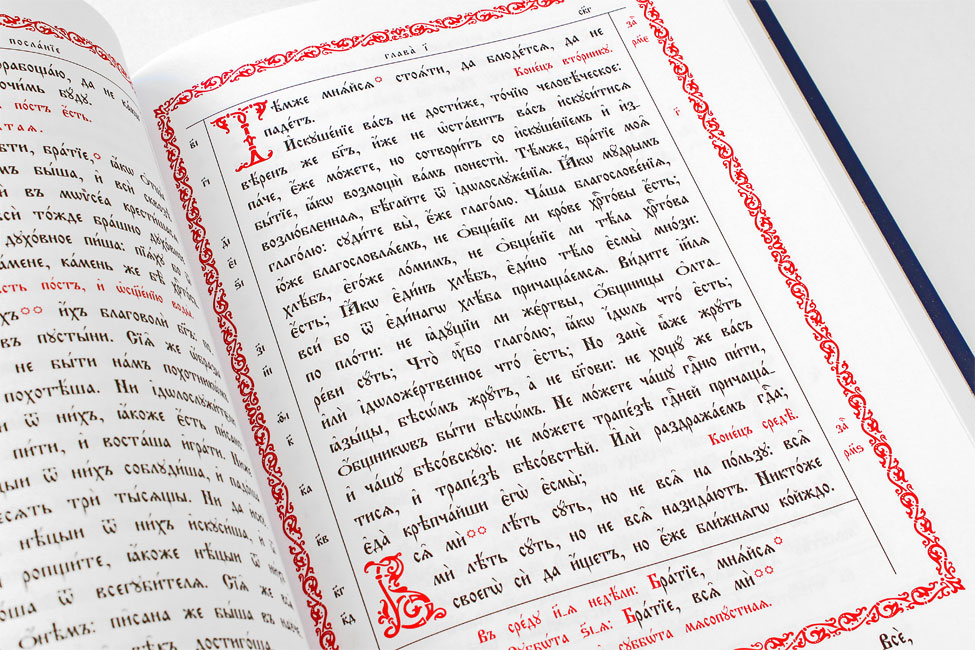 посла́нїе
порабоща́ю, да не ка́кѡ
бꙋ́дꙋ.
по́стъ є҆́сть.
бра́тїе, ꙗ҆́кѡ
бы́ша, и҆ всѝ сквозѣ̀
всѝ въ мѡѷсе́а крести́шасѧ
то́жде бра́шно дꙋхо́вное
дꙋхо́вное пи́ша: пїѧ́хꙋ бо
ка́мене, ка́мень же бѣ̀
по́стъ, и҆ ѡ҆сщ҃е́нїю воды̀.
и҆́хъ благоволѝ бг҃ъ:
въ пꙋсты́ни. Сїѧ҄ же ѡ҆́бразы
не бы́ти на́мъ похотникѡ́мъ
похотѣ́ша. Ни і҆дѡлослꙋжи́тели
ѿ ни́хъ, ꙗ҆́коже є҆́сть пи́сано
пи́ти, и҆ воста́ша и҆гра́ти. Ниже́
ѿ ни́хъ соблꙋди́ша, и҆ падо́ша
десѧть трѝ ты́сѧщы. Ни да и҆скꙋша́имъ
нѣ́цыи ѿ ни́хъ и҆скꙋси́ша, и҆
ропщи́те, ꙗ҆́коже нѣ́цыи ѿ
ѿ всегꙋби́телѧ. Сїѧ҄ же всѧ҄
пи҄сана же бы́ша въ наꙋче́нїе
дости́гоша.
глава̀ і҃
ск҃г
за҄
рм҃е
Тѣ́мже мнѧ́йсѧ стоѧ́ти, да блюде́тсѧ, да не
паде́тъ. Коне́цъ вто́рникꙋ.
г҃і И҆скꙋше́нїе ва́съ не дости́же, то́чїю человѣ́ческое:
вѣ́ренъ же бг҃ъ, и҆́же не ѡ҆ста́витъ ва́съ и҆скꙋси́тисѧ
па́че, є҆́же мо́жете, но сотвори́тъ со и҆скꙋше́нїемъ и҆ и҆з-
бы́тїе, ꙗ҆́кѡ возмощѝ ва́мъ понестѝ. Тѣ́мже, бра́тїе моѧ̑
возлю́бленнаѧ, бѣ́гайте ѿ і҆дѡлослꙋже́нїѧ. Ꙗ҆́кѡ мꙋ̑дрымъ
глаго́лю: сꙋди́те вы̀, є҆́же глаго́лю. Ча́ша благослове́нїѧ,
ю҆́же благословлѧ́емъ, не ѻ҆бще́нїе ли кро́ве хрⷭ҇то́вы є҆́сть;
хлѣ́бъ, є҆го́же ло́мимъ, не ѻ҆бще́нїе ли тѣ́ла хрⷭ҇то́ва
є҆́сть; Ꙗ҆́кѡ є҆ди́нъ хлѣ́бъ, є҆ди́но тѣ́ло є҆смы̀ мно́зи:
всѝ бо ѿ є҆ди́нагѡ хлѣ́ба причаща́емсѧ. Ви́дите і҆и҃лѧ
по пло́ти: не ꙗ҆дꙋ́щїи ли же́ртвы, ѻ҆́бщницы ѻ҆лта-
ре́ви сꙋ́ть; Что̀ ᲂу҆̀бо глаго́лю; ꙗ҆́кѡ і҆́дѡлъ что̀ є҆́сть;
и҆лѝ і҆дѡложе́ртвенное что̀ є҆́сть; Но занѐ ꙗ҆̀же жрꙋ́тъ
ꙗ҆зы́цы, бѣсѡ́мъ жрꙋ́тъ, а҆ не бг҃ови: не хощꙋ́ же ва́съ
ѻ҆́бщникѡвъ бы́ти бѣсѡ́мъ. Не мо́жете ча́шꙋ гдⷭ҇ню пи́ти,
и҆ ча́шꙋ бѣсо́вскꙋю: не мо́жете трапе́зѣ гдⷭ҇ней причаща́-
тисѧ, и҆ трапе́зѣ бѣсо́встѣй. И҆лѝ раздража́емъ гдⷭ҇а;
є҆да̀ крѣпча́йши є҆гѡ̀ є҆смы̀; Коне́цъ средѣ̀.
Всѧ̑ мѝ лѣ́ть сꙋ́ть, но не всѧ̑ на по́льзꙋ: всѧ̑
мѝ лѣ́ть сꙋ́ть, но не всѧ̑ назида́ютъ. Никто́же
своегѡ̀ сѝ да и҆́щетъ, но є҆́же бли́жнѧгѡ кі́йждо.
за҄
рм҃ѕ
Въ сре́дꙋ и҃-ѧ недѣ́ли: Бра́тїе, мнѧ́йсѧ
Сꙋббѡ́та ѕ҃і-ѧ: Бра́тїе, всѧ̑ мѝ
сꙋббѡ́та мѧсопꙋ́стнаѧ.
Всѐ,